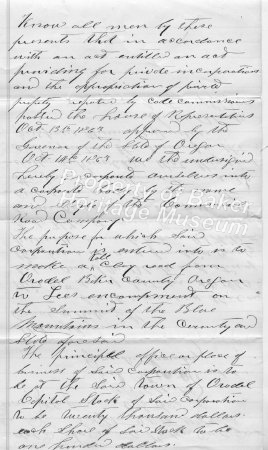 Know all men by these
presents that in accordance
with an act entitled an act
providing for private incorporations
and the appropriation of private
property reported by code commissioners
passed the House of Representatives
Oct 13th 1862 approved by the
Governor of the State of Oregon
Oct 14th 1862 we the undersigned
hereby incorporate ourselves into
a corporate body by the name
and the
Road Company
The purpose for which said
Corporation is entered into is to
make a Toll Clay road from
Orodel Baker County Oregon
to Lees encampment on
the Summit of the Blue
Mountains in the County and
State aforesaid
The principle office or place of
business of said Corporation is to
be at the said town of Orodel
Capitol Stock of said Corporation
to be twenty thousand dollars
each share of said Stock to be
one hundred dollars
Property of Baker
Heritage Museum